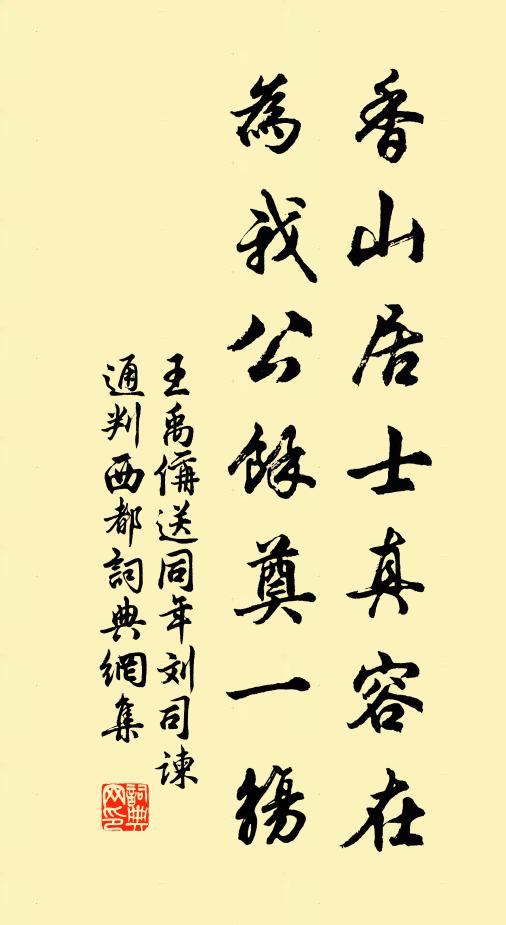 香山居士真容在
為我公餘奠一觴
王禹偁送同年刘司諫
通判西都詞典網集
詞典
网印